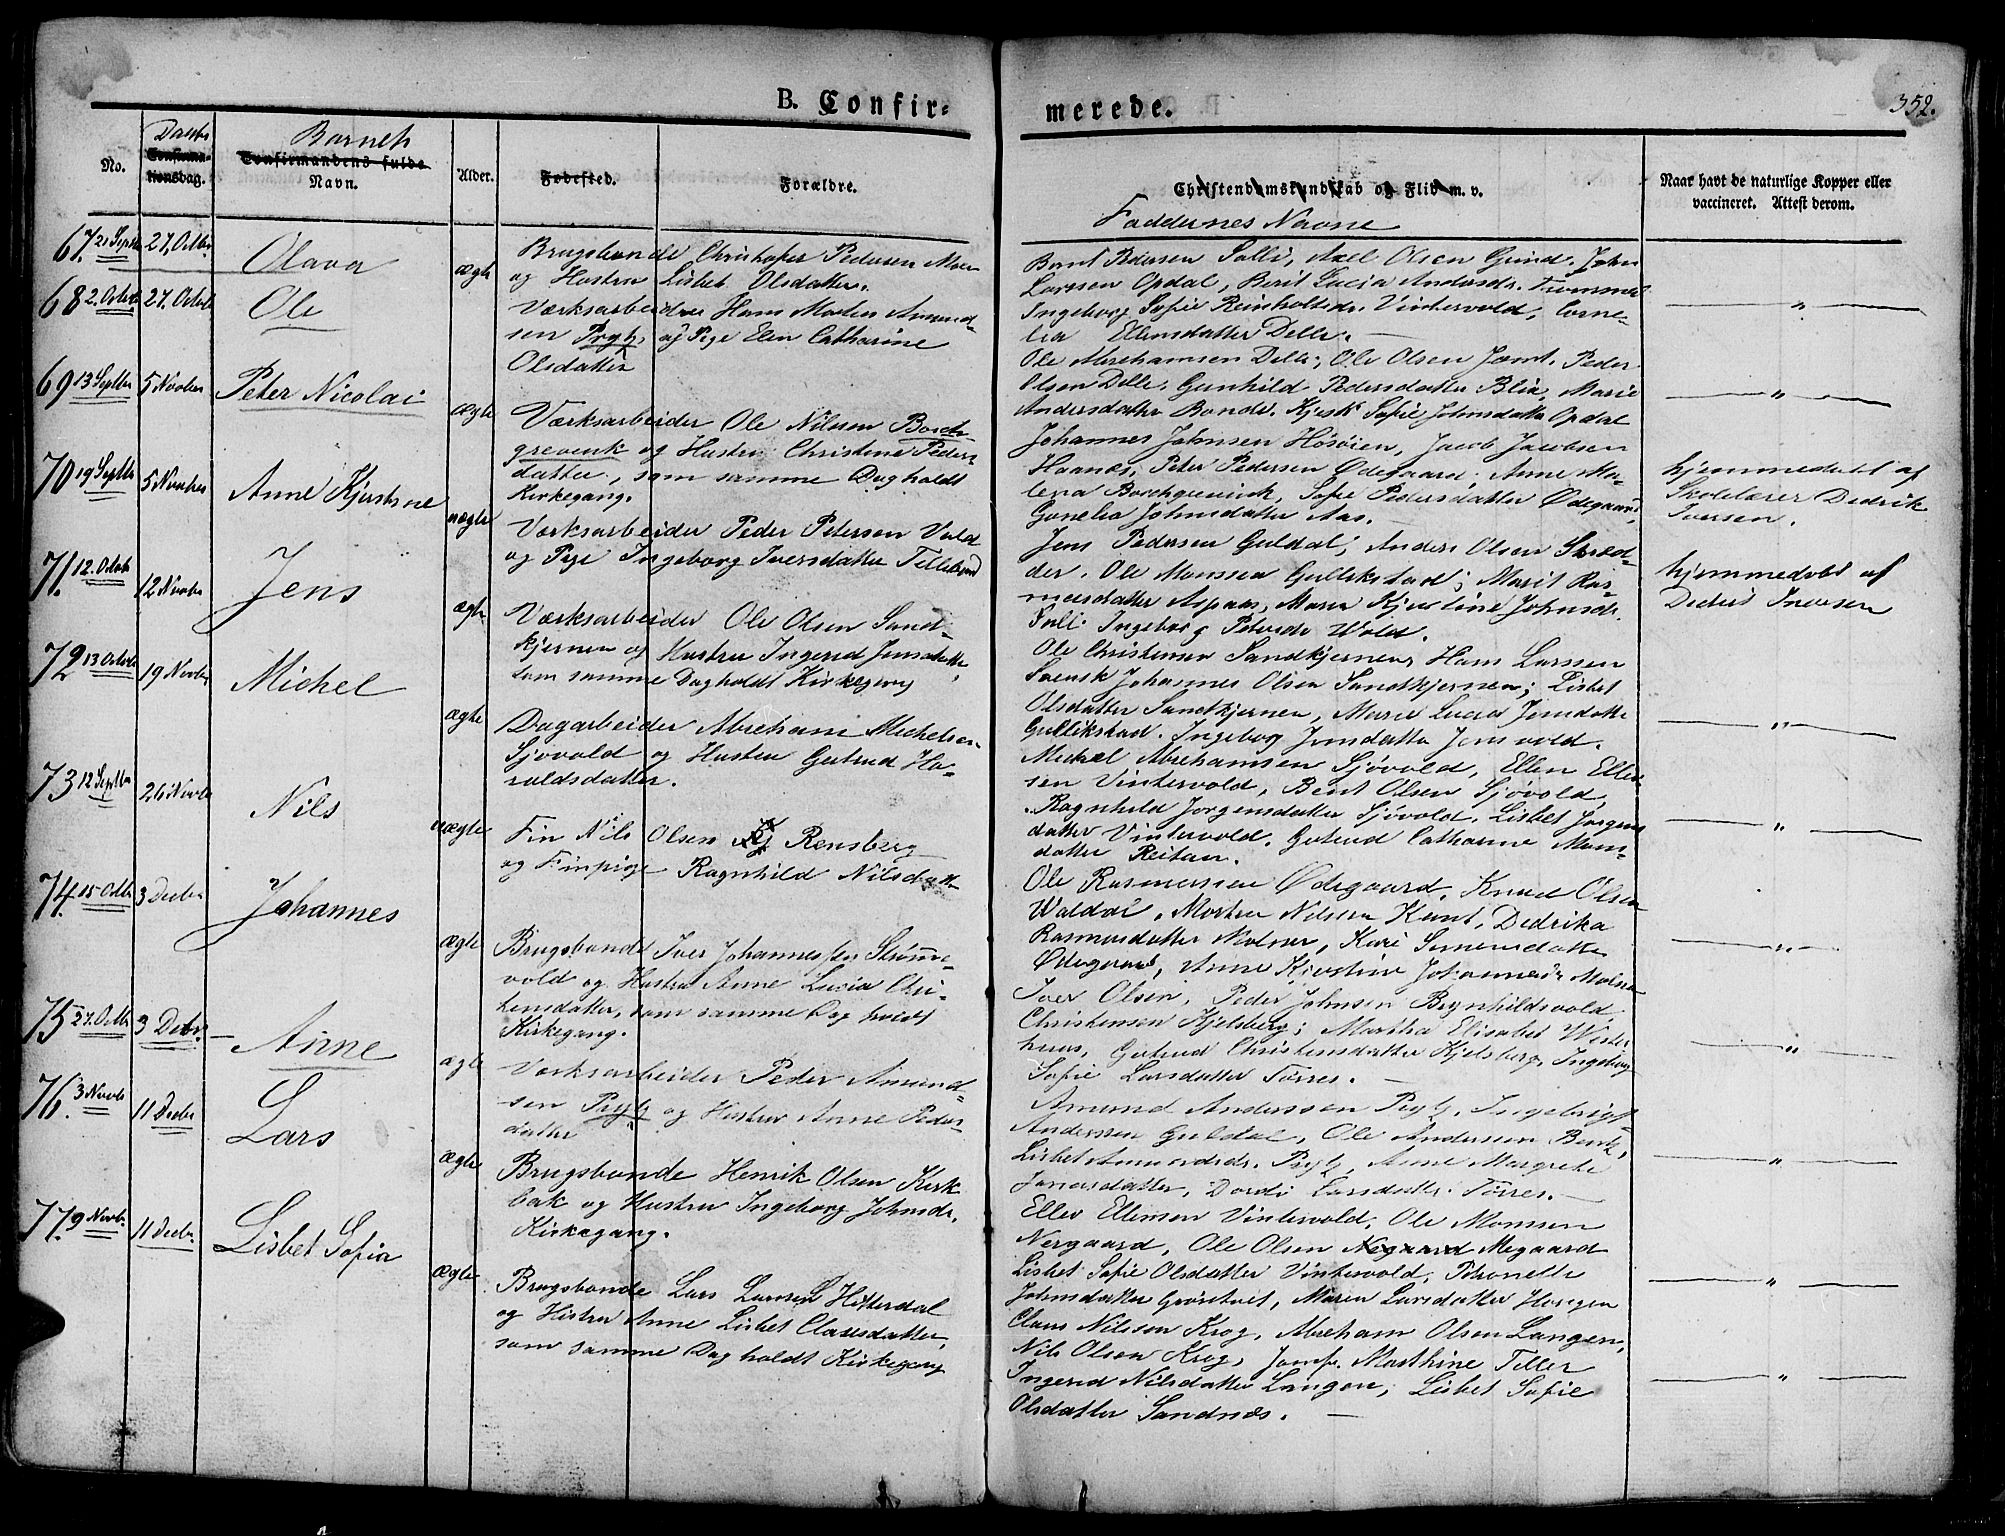 B. Confir-
merede.
352.
No.
Daabs
Confirma-
tionsdag.
Barnets
Confirmandens fulde
Navn.
Alder.
Fødested.
Forældre.
Christendomskundskab og Flid m. v.
Faddernes Navne
Naar havt de naturlige Kopper eller
vaccineret. Attest derom.
67. 21 Septbr 27. Octbr. Olava ægte
Brugsbonde Christopher Pedersen Moen
og Hustru Lisbet Olsdatter.
Bernt Pedersen Salli, Axel Olsen Grind, John
Larssen Opdal, Berit Lucia Andersdr.
68 2. Octob 27. Octob Ole
Værksarbeider Hans Morten Amund-
sen Prytz, og Pige Elen Catharine
Olsdatter
Ingeborg Sofie Reinholtsdr. Vintervold, Corne-
lia Ellensdatter Delle. —
Ole Abrehamsen Delle, Ole Olsen Jæmt. Peder
Olsen Delle. Gunhild Pedersdatter Blia, Marie
Andersdatter Bonde. Kjerst. Sofie Johnsdatter Opdal
69 13 Septbr 5 Novber Peter Nicolai ægte
Værksarbeider Ole Nilssen Borch-
grevink og Hustru Christine Peders-
datter, som samme Dag holdt
Kirkegang.
Johannes Johnsen Høsøien, Jacob Jacobsen
Haanes, Peter Pedersen Ødegaard, Anne Ma-
lena Borchgrevink, Sofie Pedersdatter Ødegaard,
Gonelia Johnsdatter Aas. —
70 19 Septbr 5 Novber Anne Kjerstine uægte
Værksarbeider Peder Petersen Vold
og Pige Ingeborg Iversdatter
Jens Pedersen Guldal, Anders Olsen Skræd-
der. Ole Monssen Gullikstad; Marit Ras-
musdatter Aspaas, Maren Kjerstine Johnsdr.
Salli Ingeborg Petersdr Wold.
hjemmedøbt af
Skolelærer Dedrik
Iversen.
71. 12. Octob 12 Novbr Jens ægte
Værksarbeider Ole Olsen Sand-
kjernen og Hustru Ingerid Jensdatter,
som samme Dag holdt Kirkegang
Ole Christensen Sandkjernen, Hans Larssen
Svensk Johannes Olsen Sandkjernen; Lisbet
Olsdatter Sandkjernen, Marie Lucia Jonsdatter
Gullikstad. Ingeborg Jonsdatter Jensvold.
hjemmedøbt af
Dedrik Iversen
72 13 Octob 19 Novbr Michel ægte
Dagarbeider Abreham Michelsen
Sjøvold og Hustru Gutrud Ha-
raldsdatter.
Mickel Abrehamsen Sjøvold, Ellen Ellev-
sen Vintervold, Bent Olsen Sjøvold,
Ragnhild Jørgensdatter Sjøvold. Lisbet Jørgens
datter Vintervold. Gutrud Catharine Mons-
datter Reitan.
73 12 Septbr 26 Novbr Nils uægte
Fin Nils Olsen Rensberg
og Finpige Ragnhild Nilsdatter
Ole Rasmussen Ødegaard, Knud Olsen
Waldal, Morten Nilsen Kant, Dedrika
Rasmusdatter Molner, Kari Simensdatter
Ødegaard, Anne Kjerstine Johannesdr Molner
74. 15 Octbr 3 Decbr Johannes ægte
Brugsbonde Iver Johannessen Strømme-
vold og Hustru Anne Lucia Chri-
stensdatter, som samme Dag holdt
Kirkegang.
Iver Olsen, Peder Johnsen Brynhildsvold
Christensen Kjelsberg; Martha Elisabet Wester
huus, Gutrud Christensdatter Kjelsberg, Ingeborg
Sofie Larsdatter Tørres. —
75 27. Octbr 3 Decbr. Anne ægte
Værksarbeider Peder Amund-
sen Prytz og Hustru Anne Peders-
datter
Amund Anderssen Prytz, Ingebrigt
Anderssen Guldal, Ole Anderssen Bent,
Lisbet Amundsdr. Prytz, Anne Margrete
Jonasdatter, Dordi Larsdatter Tørres. —
76. 3 Novbr 11 Decbr Lars ægte
Brugsbonde Henrik Olsen Kirk
bak og Hustru Ingeborg Johnsdr.
Kirkegang.
Ellev Ellevsen Vintervold, Ole Monssen
Nergaard, Ole Olsen Negaard Megaard
Lisbet Sofie Olsdatter Vintervold, Petronelle
Johnsdatter Grøntvet, Maren Larsdatter
77. 9 Novbr. 11 Decbr Lisbet Sofia ægte
Brugsbonde Lars Larssen Hitterdal
og Hustru Anne Lisbet Clausdatter,
som samme Dag holdt Kirkegang
Claus Nilssen Krog, Abreham Olsen Langen,
Nils Olsen Krog, Jomf. Marthine Teller
Ingerid Nilsdatter Langen, Lisbet Sofie
Olsdatter Sandnæs. —